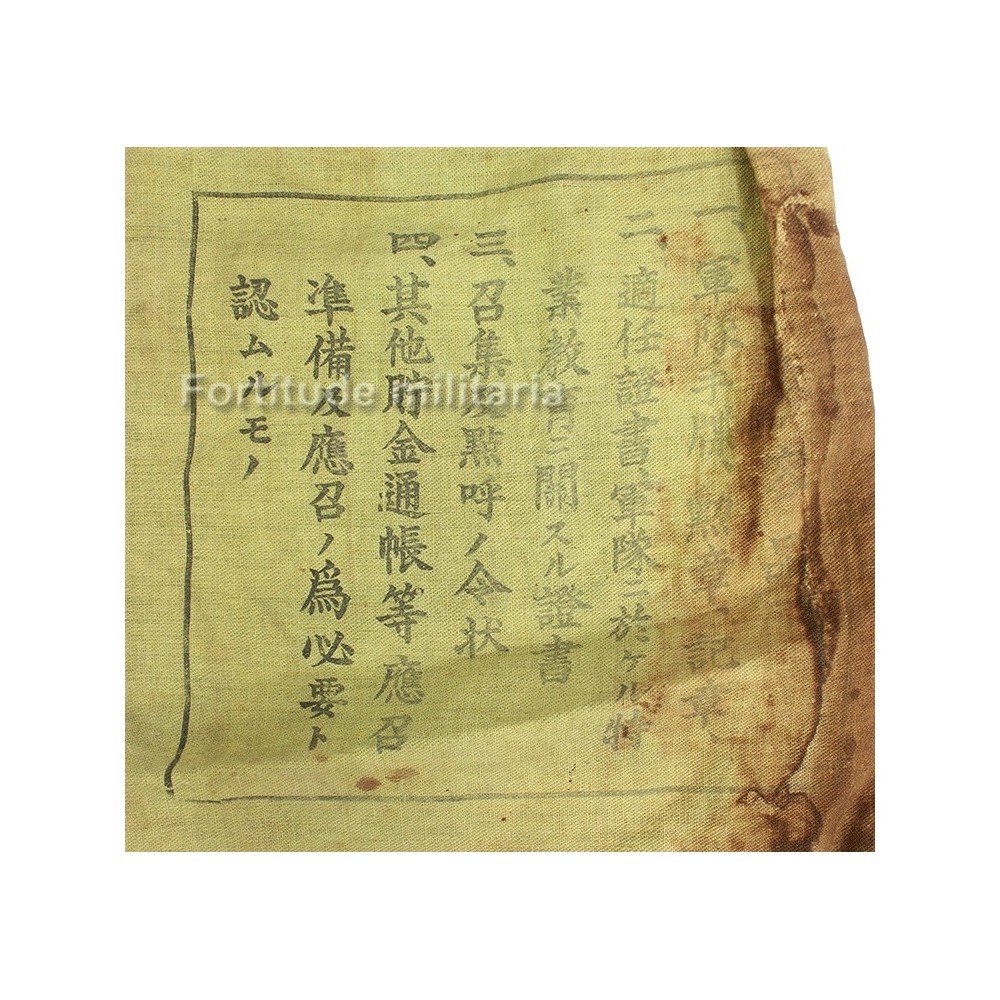 一、軍隊手牒、勲章、記章、
二、適任證書、軍隊ニ於ケル特
業教育ニ關スル證書
三、召集及點呼ノ令状
四、其他貯金通帳等應召
準備及應召ノ爲必要ト
認ムルモノ
Fortitude Militaria